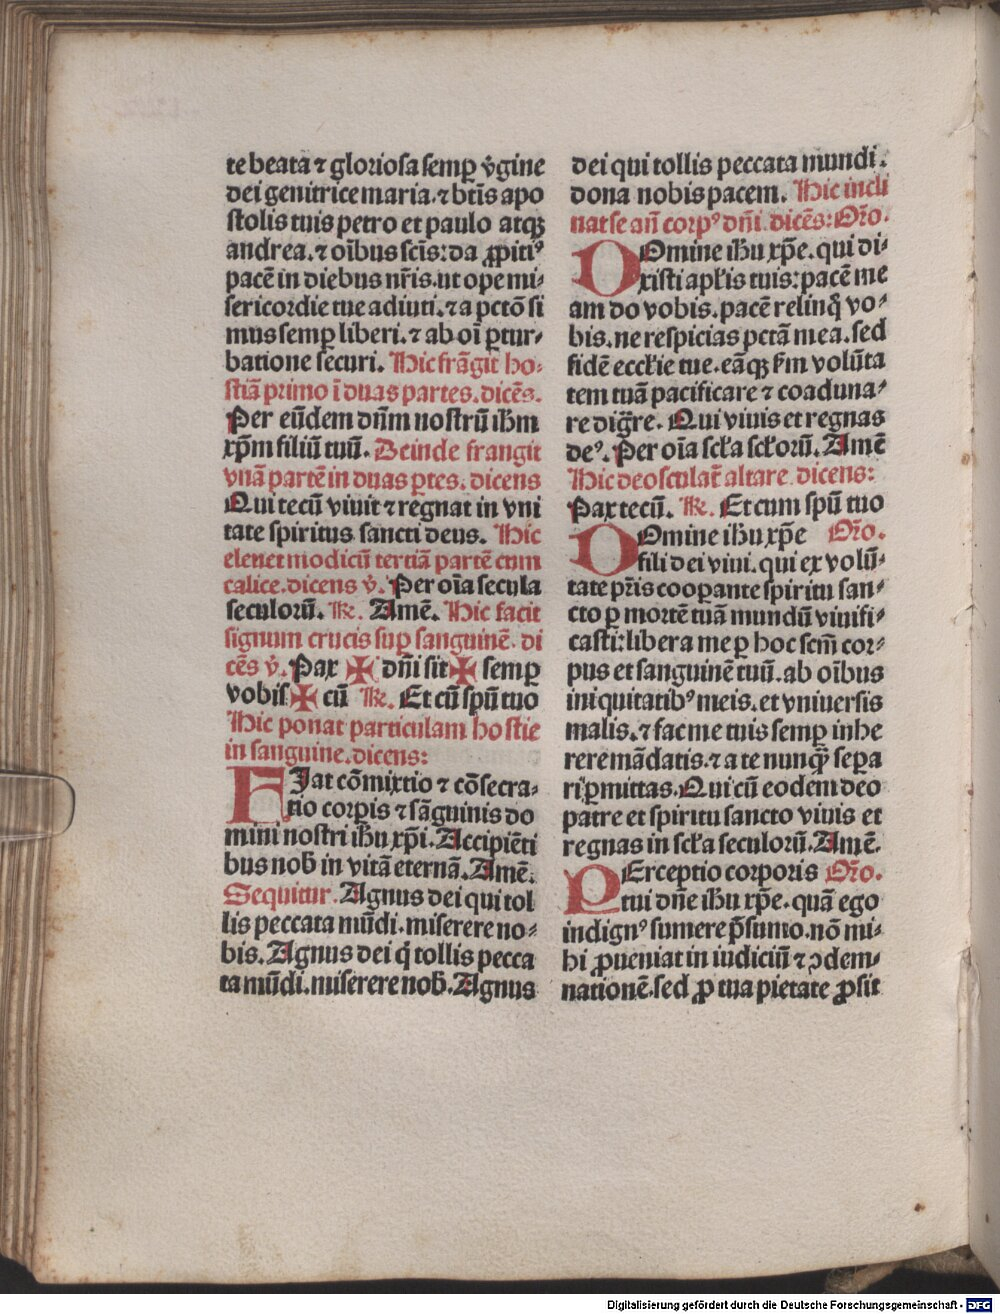 te beata ⁊ gloriosa semꝑ v̾gine
dei genitrice maria. ⁊ btīs apo
stolis tuis petro et paulo atqꝫ
andrea. ⁊ oībus scīs: da ꝓpitiꝰ
pacē in diebus nr̄is. ut ope mi⸗
sericordie tue adiuti. ⁊ a pctō si
mus semꝑ liberi. ⁊ ab oī ꝑtur⸗
batione securi. Hic frāgit ho⸗
stiā primo ī duas partes. dicēs.
Per eūdem dn̄m nostrū ihm̄
xp̄m filiū tuū. Deinde frangit
vnā partē in duas ꝑtes. dicens
Qui tecū viuit ⁊ regnat in vni
tate spiritus sancti deus. Hic
eleuet modicū tertiā partē cum
calice. dicens v̾. Per oīa secula
seculorū. ℟. Amē. Hic facit
signum crucis suꝑ sanguinē. di
cēs v̾. Pax ✠ dn̄i sit ✠ semꝑ
vobis ✠ cū ℟. Et cū spū tuo
Hic ponat particulam hostie
in sanguine. dicens:
FJat cōmixtio ⁊ cōsecra⸗
tio corꝑis ⁊ sāguinis do
mini nostri ihu xp̄i. Accipiēti
bus nob̄ in vitā eternā. Amē.
Sequitur. Agnus dei qui tol
lis peccata mūdi. miserere no⸗
bis. Agnus dei q̇ tollis pecca
ta mūdi. miserere nob̄. Agnus
dei qui tollis peccata mundi.
dona nobis pacem. Hic incli
nat se an̄ corpꝰ dn̄i. dicēs: Or̄o.
DOmine ihu xp̄e. qui di⸗
xisti apl̄is tuis: pacē me
am do vobis. pacē relinq̇ vo⸗
bis. ne respicias pctā mea. sed
fidē eccl̄ie tue. eāqꝫ ẜm volūta
tem tuā pacificare ⁊ coaduna⸗
re dig̃re. Qui viuis et regnas
deꝰ. Per oīa scl̄a scl̄orū. Amē
Hic deosculat᷑ altare dicens:
Pax tecū. ℟. Et cum spū tuo
DOmine ihu xp̄e Or̄o.
fili dei viui. qui ex volū⸗
tate pr̄is cooꝑante spiritu san⸗
cto ꝑ mortē tuā mundū viuifi⸗
casti: libera me ꝑ hoc scm̄ cor⸗
pus et sanguinē tuū. ab oībus
iniquitatibꝰ meis. et vniuersis
malis. ⁊ fac me tuis semꝑ inhe
rere mādatis. ⁊ a te nunqꝫ̄ sepa
ri ꝑmittas. Qui cū eodem deo
patre et spiritu sancto viuis et
regnas in scl̄a seculorū. Amē.
PErceptio corporis Or̄o.
tui dn̄e ihu xp̄e. quā ego
indignꝰ sumere p̄sumo. nō mi⸗
hi ꝓueniat in iudiciū ⁊ ↄdem⸗
nationē. sed ꝓ tua pietate ꝓsit
Digitalisierung gefördert durch die Deutsche Forschungsgemeinschaft - DFG